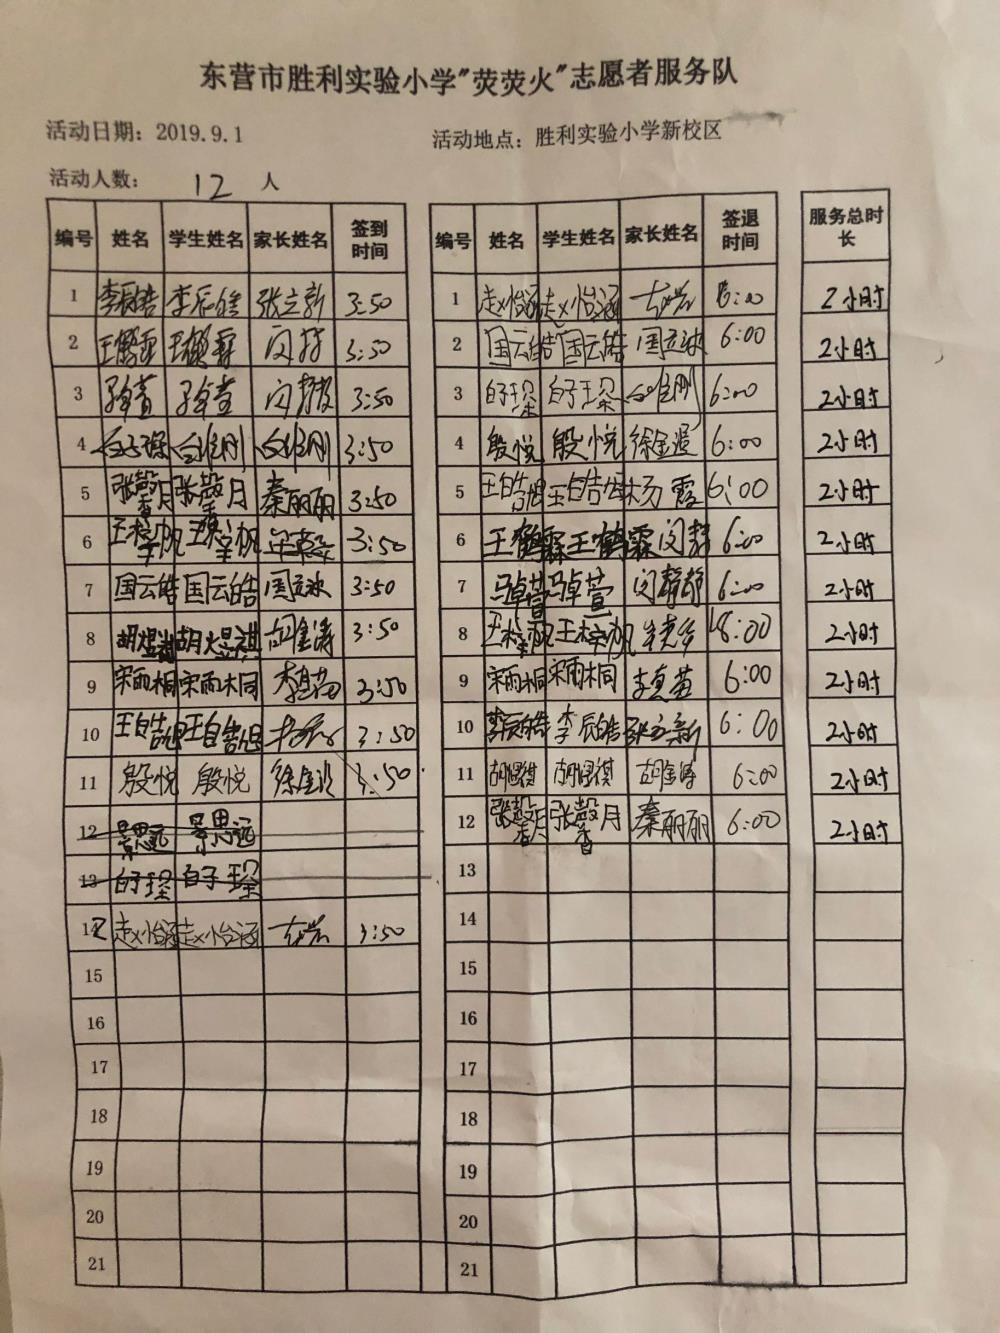 东营市胜利实验小学"荧荧火"志愿者服务队
活动日期：2019.9.1 活动地点：胜利实验小学新校区
活动人数： 12 人
编号 姓名 学生姓名 家长姓名 签到时间 编号 姓名 学生姓名 家长姓名 签退时间 服务总时长
1 李辰皓 李辰皓 张立新 3:50 1 赵怡涵 赵怡涵 6:00 2小时
2 王鹤霖 王鹤霖 闵静 3:50 2 国云皓 国云皓 国立冰 6:00 2小时
3 卓萱 卓萱 闵静 3:50 3 白子琛 白子琛 白维刚 6:00 2小时
4 白子琛 白维刚 白维刚 3:50 4 殷悦 殷悦 徐金 6:00 2小时
5 张馨月 张馨月 秦丽丽 3:50 5 王皓旭 王皓旭 杨霞 6:00 2小时
6 王梓帆 王梓帆 3:50 6 王鹤霖 王鹤霖 闵静 6:00 2小时
7 国云皓 国云皓 国立冰 3:50 7 马卓萱 马卓萱 闵静静 6:00 2小时
8 胡煜祺 胡煜祺 胡金涛 3:50 8 王梓帆 王梓帆 8:00 2小时
9 宋雨桐 宋雨桐 李真茹 3:50 9 宋雨桐 宋雨桐 6:00 2小时
10 王皓旭 王皓旭 3:50 10 李辰皓 李辰皓 张立新 6:00 2小时
11 殷悦 殷悦 徐金 3:50 11 胡煜祺 胡煜祺 胡金涛 6:00 2小时
12 景思远 景思远 12 张馨月 张馨月 秦丽丽 6:00 2小时
13 白子琛 白子琛 13
12 赵怡涵 赵怡涵 3:50 14
15 15
16 16
17 17
18 18
19 19
20 20
21 21